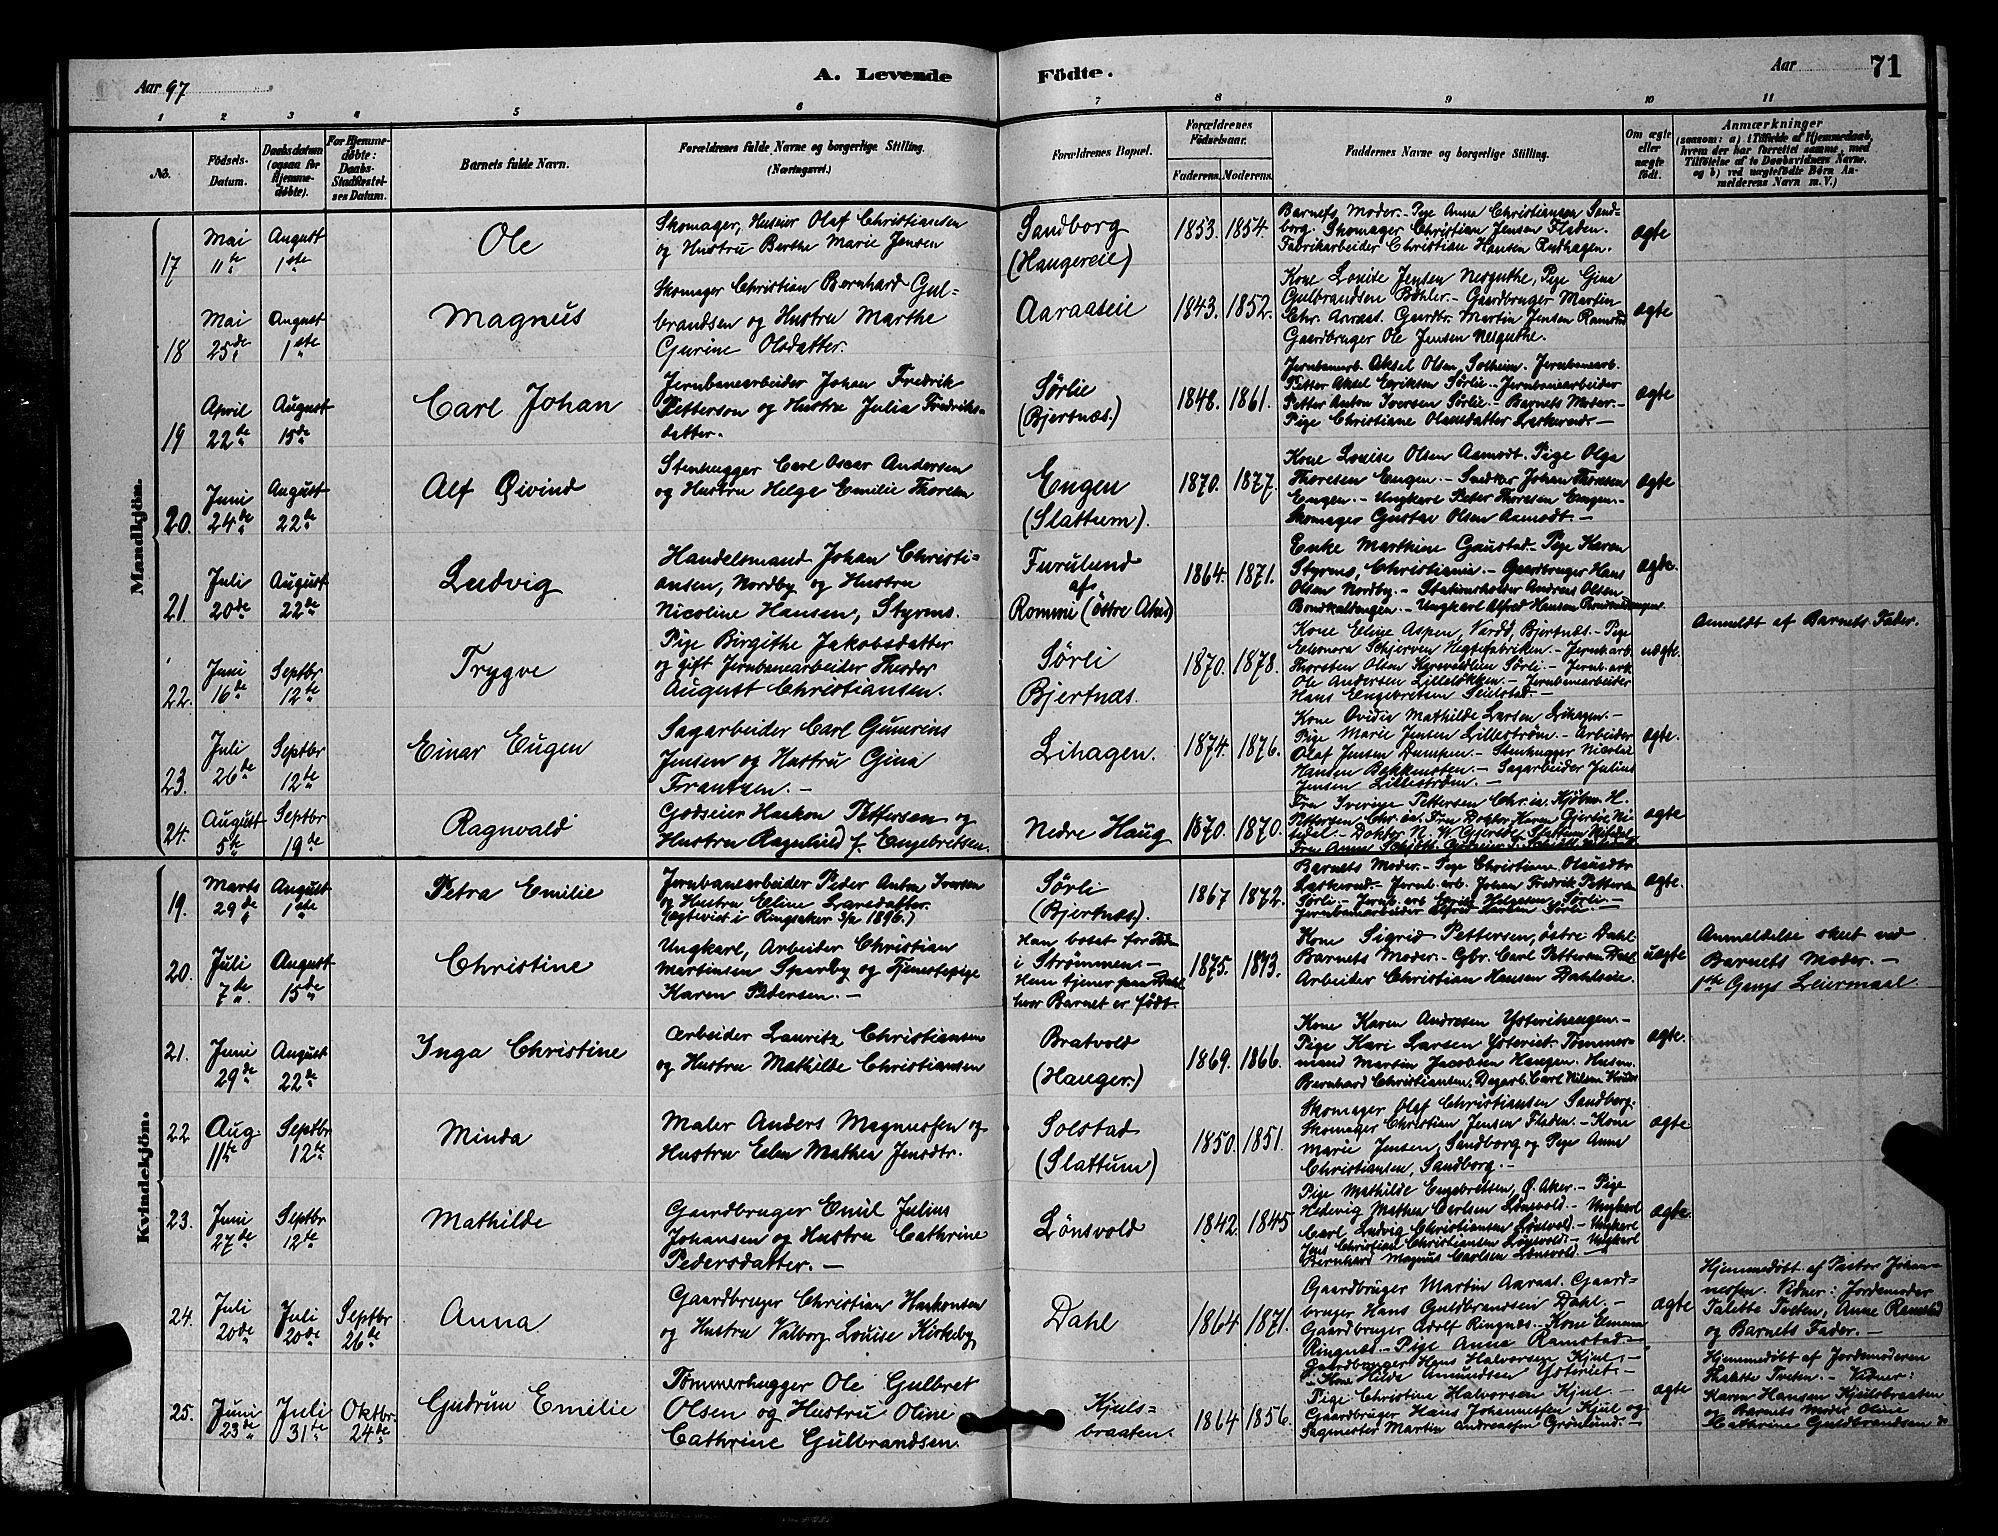 Aar 97
A. Levende
Födte.
Aar
71
1 2 3 4 5 6 7 8 9 10 11
No.
Födsels-
Datum.
Daabsdatum
(ogsaa for
Hjemme-
døbte).
For Hjemme-
døbte:
Daabs-
Stadfæstel-
ses Datum.
Barnets fulde Navn.
Forældrenes fulde Navne og borgerlige Stilling.
(Næringsvei.)
Forældrenes Bopæl.
Forældrenes
Födselsaar.
Faderens. Moderens.
Faddernes Navne og borgerlige Stilling.
Om ægte
eller
uægte
födt.
Anmærkninger
(saasom: a) i Tilfælde af Hjemmedaab,
hvem der har forrettet samme, med
Tilföielse af to Daabsvidners Navne.
og b) ved uægtefödte Börn An-
melderens Navn m. V.)
Mandkjön.
17
Mai
11te
August
1ste
Ole
Skomager, Huseier Olaf Christiansen
og Hustru Berthe Marie Jensen
Sandborg
(Haugereie)
1853. 1854.
Barnets Moder. - Pige Anna Christiansen Sand-
borg. Skomager Christian Jensen Fladen.
Fabrikarbeider Christian Hansen Rudhagen.
ægte
18
Mai
25de
August
1ste
Magnus
Skomager Christian Bernhard Gul-
brandsen og Hustru Marthe
Gurine Olsdatter.
Aaraaseie
1843. 1852.
Kone Louise Jensen Nesguthe, Pige Gina
Gulbrandsen Bøhler. - Gaardbruger Martin
Chr. Aaraas. Gaardbr. Martin Jensen Ramstad
Gaardbruger Ole Jensen Nesguthe.
ægte
19
April
22de
August
15de
Carl Johan
Jernbanearbeider Johan Fredrik
Petterson og Hustru Julia Fredriks-
datter.
Sørlie
(Bjertnæs.)
1848. 1861.
Jernbanearb. Aksel Olsen, Solheim. Jernbanearb.
Petter Aksel Eriksen Sørlie. - Jernbanearbeider
Petter Anton Iversen Sørlie. - Barnets Moder. -
Pige Christiane Olausdatter Laskerud. -
ægte
20.
Juni
24de
August
22de
Alf Øivind
Stenhugger Carl Oscar Andersen
og Hustru Helga Emilie Thoresen
Engen
(Slattum).
1870. 1877.
Kone Louise Olsen Aamodt. Pige Olga
Thoresen Engen. - Snedker Johan Thoresen
Engen. - Ungkarl Peter Thoresen Engen. -
Skomager Gustav Olsen Aamodt. -
ægte
21.
Juli
20de
August
22de
Ludvig
Handelsmand Johan Christi-
ansen, Nordby og Hustru
Nicoline Hansen, Styrms.
Furulund
af
Rommi (östre Akers)
1864. 1871.
Enke Marthine Gaustad. Pige Karen
Styrms, Christiania. - Gaardbruger Hans
Olsen Nordby. - Stationsholder Andreas Olsen
Bondkaltengen. - Ungkarl Alfred Hansen
ægte.
22.
Juni
16de
Septbr
12te
Trygve
Pige Birgithe Jakobsdatter
og gift Jernbanearbeider Theodor
August Christiansen.
Sørli
Bjertnæs.
1870. 1878.
Kone Eline Aspen, Vardö, Bjertnæs. - Pige
Eleonora Schjerven Hegtefabriken. - Jernb.arb
Thorsten Olsen Sørli. - Jernb.arb
Ole Andersen Lilleløkken. - Jernbanearbeider
Hans Engebretsen Seielstad. -
uægte.
Anmeldt af Barnets Fader.
23.
Juli
26de
Septbr
12te
Einar Eugen
Sagarbeider Carl Gunerius
Jensen og Hustru Gina
Frantzen. -
Lihagen.
1874. 1876.
Kone Ovidia Mathilde Larsen Lihagen. -
Pige Marie Jensen Lillestrøm. - Arbeider
Olaf Jensen Dumpen. - Stenhugger Nicolai
Hansen Bakkensten. - Sagarbeider Julius
Jensen Lillestrøm. -
ægte.
24.
August
5te
Septbr
19de
Ragnvald
Godseier Haakon Pettersen og
Hustru Ragnhild f. Engebretsen.
Nedre Haug
1870. 1870.
Fru Sverige Pettersen Chr.ia. Kjøbm. H.
Pettersen Chr.ia. Fru Doktor Karen Gjersöe Ni-
tedal. - Doktor N. W. Gjersöe, Slattum Nitedal
ægte
Kvindekjön.
19.
Marts
29de
August
1ste
Petra Emilie
Jernbanearbeider Peder Anton Iversen
og Hustru Eline Larsdatter.
(ægteviet i Ringsaker 1896.)
Sørli
(Bjertnæs).
1867 1872.
Barnets Moder - Pige Christiane Olausdtr
Laskerud. - Jernb.arb. Johan Fredrik Pettersen
Sørli. - Jernb.arb Helgesen, Sørli. -
Jernbanearbeider Alfred Karlsen Sørli. -
ægte.
20.
Juli
7de
August
15de
Christine
Ungkarl, Arbeider Christian
Martinsen Spaarby og Tjenestepige
Karen Pedersen. -
Han bosat
i Strømmen. -
Hun tjener paa Dahl
hvor Barnet er født.
1875. 1873.
Kone Sigrid Pettersen, östre Dahl
Barnets Moder. - Gbr. Carl Pettersen Dahl
Arbeider Christian Hansen Dahleie.
uægte
Anmeldelse skeet ved
Barnets Moder. -
1ste Gangs Leiermaal.
21.
Juni
29de
August
22de
Inga Christine
Arbeider Lauritz Christiansen
og Hustru Mathilde Christiansen
Bratvold
(Hauger.)
1869. 1866.
Kone Karen Andresen Ysterihaugen. -
Pige Kari Larsen Ysteriet. Tømmer-
mand Martin Jacobsen Haugen. Husm.
Bernhard Christiansen, Dagarb. Carl Nilsen
ægte.
22.
Aug.
11te
Septbr
12te
Minda
Maler Anders Magnussen og
Hustru Elen Mathea Jensdtr.
Solstad
(Slattum)
1850. 1851.
Skomager Olaf Christiansen Sandborg.
Skomager Christian Jensen Fladen. - Kone
Marie Jensen, Sandborg og Pige Anna
Christiansen, Sandborg. -
ægte
23.
Juni
27de
Septbr
12te
Mathilde
Gaardbruger Emil Julius
Johansen og Hustru Cathrine
Pedersdatter. -
Lönsvold
1842. 1845
Pige Mathilde Engebretsen, Ø. Aker. - Pige
Hedevig Mathea Carlsen Lönsvold. - Ungkarl
Carl Ludvig Christiansen Lönsvold. - Ungkarl
Jens Christian Christiansen Lönsvold. - Ungkarl
Bernhard Magnus Carlsen Lönsvold. -
ægte.
24.
Juli
20de
Juli
20de
Septbr
26de
Anna
Gaardbruger Christian Haakonsen
og Hustru Valborg Louise Kirkeby
Dahl
1864. 1871.
Gaardbruger Martin Aaraas. Gaard-
bruger Hans Guldbrandsen Dahl. -
Gaardbruger Adolf Ringnæs. - Kone Emma
Ringnæs. - Pige Anna Ramstad. -
ægte
Hjemmedøbt af Pastor Johan-
nesen. Vidner: Jordemoder
Talette Tveten, Anne Ramstad
og Barnets Fader. -
25.
Juni
23de
Juli
31te
Oktbr.
24de
Gudrun Emilie
Tømmerhugger Ole Gulbret
Olsen og Hustru Oline
Cathrine Gulbrandsen.
Kjuls-
braaten.
1864 1856.
Gaardbruger Hans Halvorsen Kjul. -
Kone Hilde Amundsen Ysteriet. -
Pige Christine Halvorsen Kjul. -
Gaardbruger Hans Johannessen Kjul og
Sagmester Marten Andreassen Grønlund. -
ægte
Hjemmedøbt af Jordemoderen
Talette Tveten. - Vidner:
Karen Hansen Kjulsbraaten
og Barnets Moder Oline
Cathrine Guldbrandsen